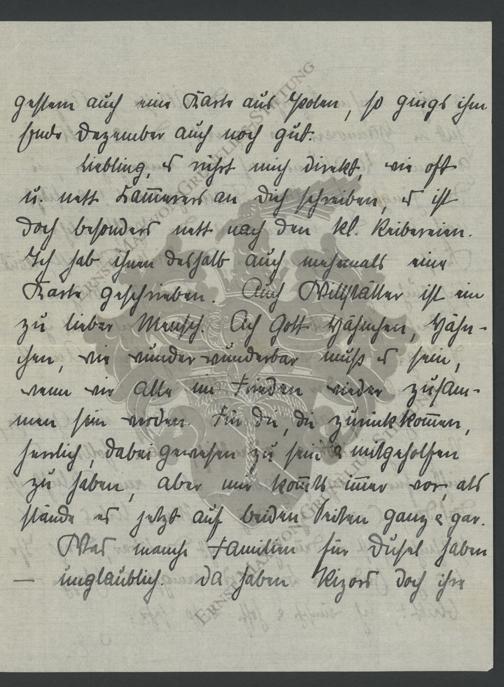 gestern auch eine Karte aus Polen, so gings ihm
Ende Dezember auch noch gut.
Liebling, es rührt mich direkt, wie oft
u. nett Kam̄erers an Dich schreiben, es ist
doch besonders nett nach den kl. Reibereien.
Ich hab ihnen deshalb auch mehrmals eine
Karte geschrieben. Auch Willstätter ist ein
zu lieber Mensch. Ach Gott Hähnchen, Hähn-
chen, wie wunder-wunderbar muß es sein,
wenn wir alle im Frieden wieder zusam-
men sein werden. Für die, die zurückkom̄en,
herrlich, dabei gewesen zu sein & mitgeholfen
zu haben, aber mir kom̄ts im̄er vor, als
stände es jetzt auf beiden Seiten ganz & gar.
Was manche Familien für Dusel haben
— unglaublich. Da haben doch ihre
ERNST MAX VON GRUNELIUS-STIFTUNG